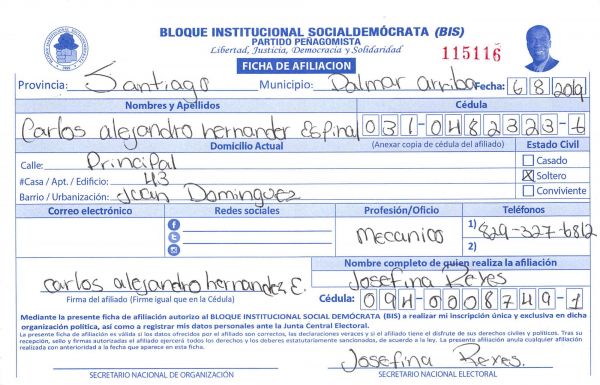 BLOQUE INSTITUCIONAL SOCIALDEMÓCRATA (BIS)
PARTIDO PEÑAGOMISTA
Libertad, Justicia, Democracia y Solidaridad
115116
FICHA DE AFILIACION
Provincia: Santiago Municipio: Palmar arriba Fecha: 6 8 2019
Nombres y Apellidos Cédula
Carlos alejandro hernander Espinal 031-0482323-6
Domicilio Actual (Anexar copia de cédula del afiliado) Estado Civil
Calle: Principal Casado
#Casa / Apt. / Edificio: 43 X Soltero
Barrio / Urbanización: Juan Dominguez Conviviente
Correo electrónico Redes sociales Profesión/Oficio Teléfonos
Mecanico 1) 829-327-6812
2)
Nombre completo de quien realiza la afiliación
carlos alejandro hernandes E. Josefina Reyes
Firma del afiliado (Firme igual que en la Cédula) Cédula: 094-0008749-1
Mediante la presente ficha de afiliación autorizo al BLOQUE INSTITUCIONAL SOCIAL DEMÓCRATA (BIS) a realizar mi inscripción única y exclusiva en dicha
organización política, así como a registrar mis datos personales ante la Junta Central Electoral.
La presente ficha de afiliación es válida si los datos ofrecidos por el afiliado son correctos, las declaraciones veraces y si el afiliado tiene el disfrute de sus derechos civiles y políticos. Tras su
recepción, sello y firmas autorizadas el afiliado ejercerá todos los derechos y los deberes estatutariamente sancionados, de acuerdo a la ley. La presente afiliación anula cualquiera realizada
con anterioridad a la fecha que aparece en esta ficha.
Josefina Reyes.
SECRETARIO NACIONAL DE ORGANIZACIÓN SECRETARIO NACIONAL ELECTORAL